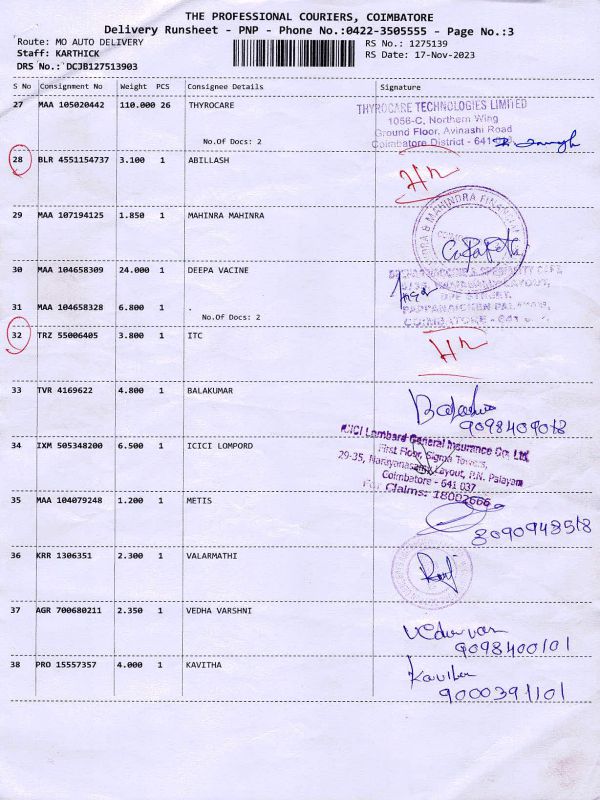 THE PROFESSIONAL COURIERS, COIMBATORE
Delivery Runsheet - PNP - Phone No.:0422-3505555 - Page No.:3
Route: MO AUTO DELIVERY
RS No.: 1275139
Staff: KARTHICK
RS Date: 17-Nov-2023
DRS No.: DCJB127513903
S No Consignment No Weight PCS Consignee Details Signature
27 MAA 105020442 110.000 26 THYROCARE
No.Of Docs: 2
THYROCARE TECHNOLOGIES LIMITED
1056-C, Northern Wing
Ground Floor, Avinashi Road
Coimbatore District - 641
28 BLR 4551154737 3.100 1 ABILLASH
29 MAA 107194125 1.850 1 MAHINRA MAHINRA
30 MAA 104658309 24.000 1 DEEPA VACINE
31 MAA 104658328 6.800 1 .
No.Of Docs: 2
COIMBATORE - 641
32 TRZ 55006405 3.800 1 ITC
33 TVR 4169622 4.800 1 BALAKUMAR
34 IXM 505348200 6.500 1 ICICI LOMPORD
ICICI Lombard General Insurance Co. Ltd.
First Floor, Sigma Towers,
29-35, Narayanasamy Layout, P.N. Palayam
Coimbatore - 641 037
For Claims: 18002666
35 MAA 104079248 1.200 1 METIS
8090948518
36 KRR 1306351 2.300 1 VALARMATHI
37 AGR 700680211 2.350 1 VEDHA VARSHNI
9098400101
38 PRO 15557357 4.000 1 KAVITHA
Kavitha
9000391101